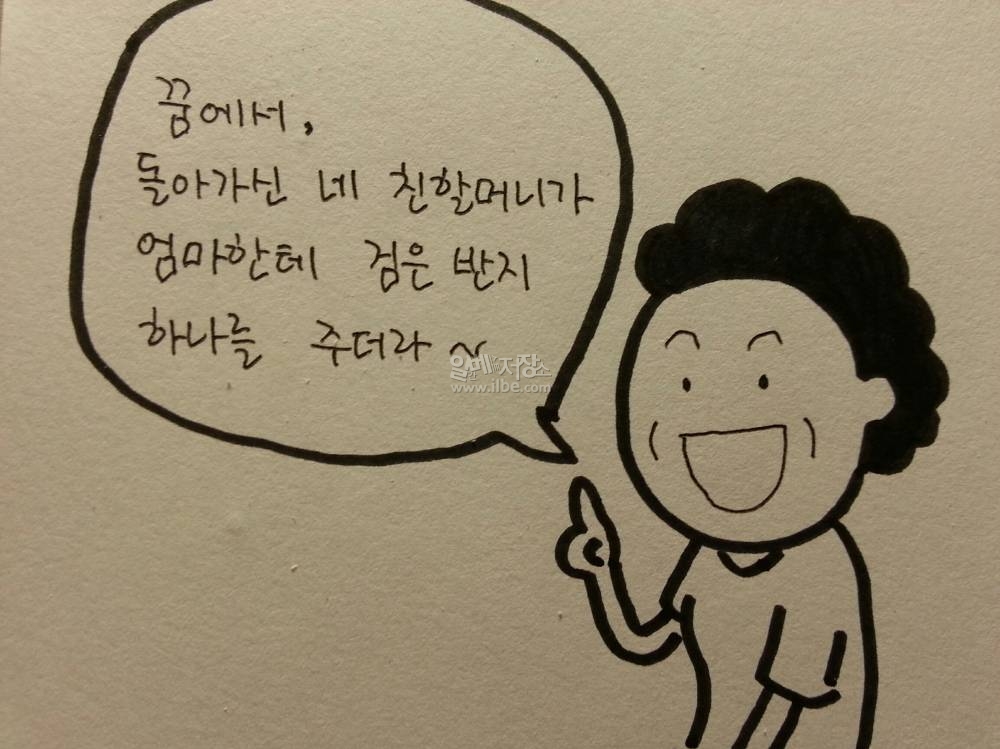 꿈에서,
돌아가신 네 친할머니가
엄마한테 검은 반지
하나를 주더라~
일베저장소
www.ilbe.com